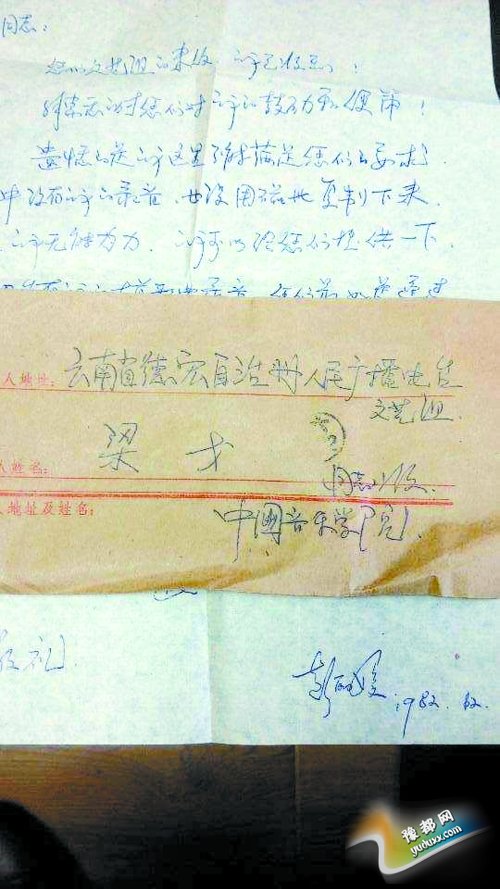 同志：
您的文艺组的来信，我已收到！
非常感谢您们对我的鼓励和便笺！
遗憾的是我这里不能满足您们的要求，
中没有我的录音，也没用磁带复制下来，
我无能为力。我可以给您们提供一下，
人地址：云南省德宏自治州人民广播电台
文艺组
人姓名：梁才
同志收
人地址及姓名：中国音乐学院
敬礼
彭丽媛
1982.
豫都网
yuduxx.com